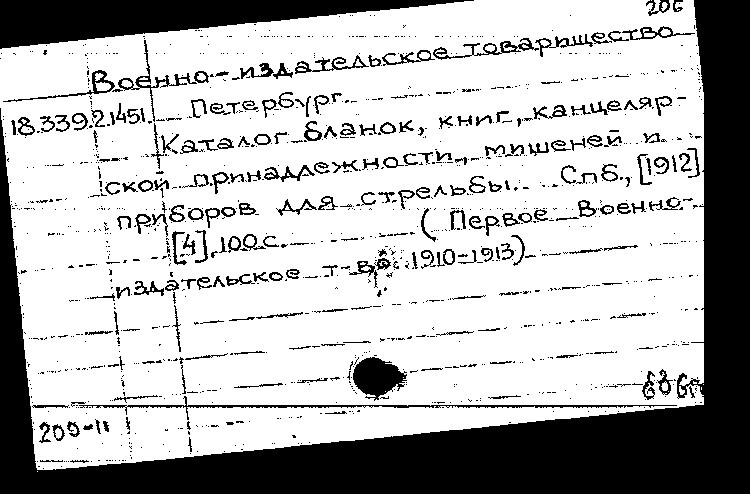 206
Военно-издательское товарищество
18.339.2.1451. Петербург.
Каталог бланок, книг, канцеляр-
ской принадлежности, мишеней и
приборов для стрельбы. Спб., [1912]
[4], 100 с. (Первое военно-
издательское т-во 1910-1913)
200-11